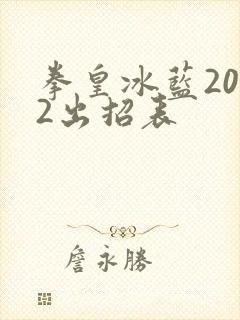 拳皇冰藍20
2出招表
詹永勝